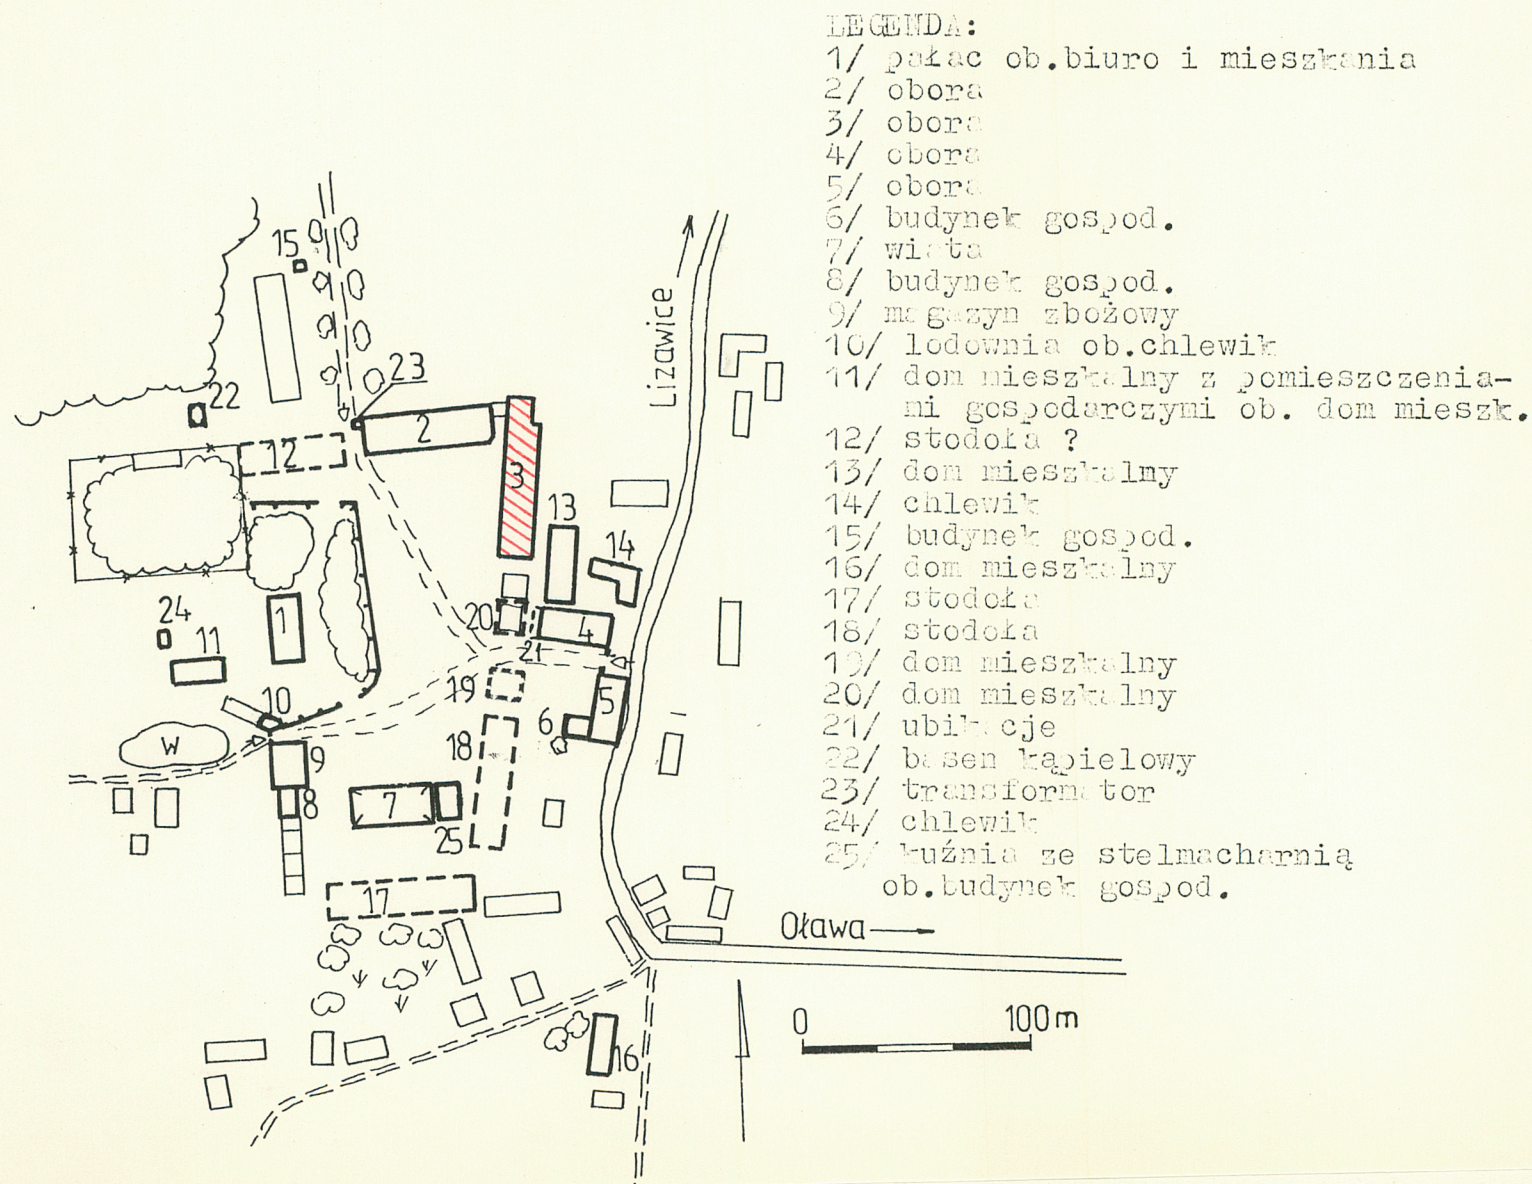 LEGENDA:
1/ pałac ob.biuro i mieszkania
2/ obora
3/ obora
4/ obora
5/ obora
6/ budynek gospod.
7/ wiata
8/ budynek gospod.
9/ magazyn zbożowy
10/ lodownia ob.chlewik
11/ dom mieszkalny z pomieszczenia-
mi gospodarczymi ob. dom mieszk.
12/ stodoła ?
13/ dom mieszkalny
14/ chlewik
15/ budynek gospod.
16/ dom mieszkalny
17/ stodoła
18/ stodoła
19/ dom mieszkalny
20/ dom mieszkalny
21/ ubikacje
22/ basen kąpielowy
23/ transformator
24/ chlewik
25/ kuźnia ze stelmacharnią
ob.budynek gospod.
15
Lizawice
23
22
2
12
3
13
14
24
1
20
4
11
21
19
10
5
6
W
18
9
7
8
25
17
Oława
0
100m
16